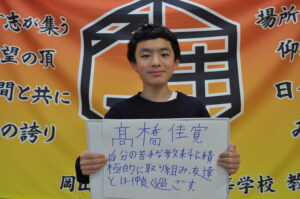 志が集う
望の頂
間と共に
の誇り
場所
仰
日々
あ
高橋佳寛
自分の苦手な教科に積
極的に取り組み、友達
とは仲良く過ごす
岡
学校 教